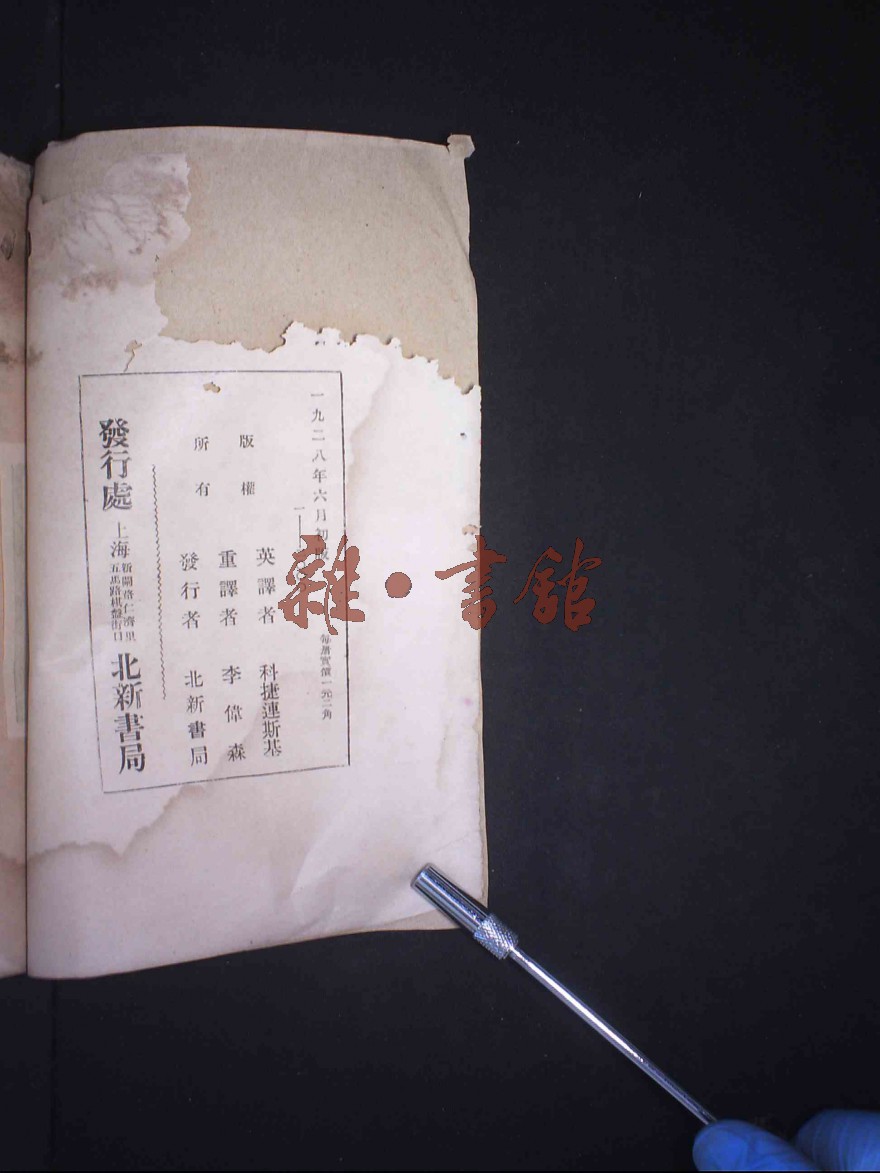 一九二八年六月初版
每册實價一元二角
版權
所有
英譯者 科捷連斯基
重譯者 李偉森
發行者 北新書局
發行處 上海 新閘路仁濟里 五馬路棋盤街口 北新書局
雜·書館